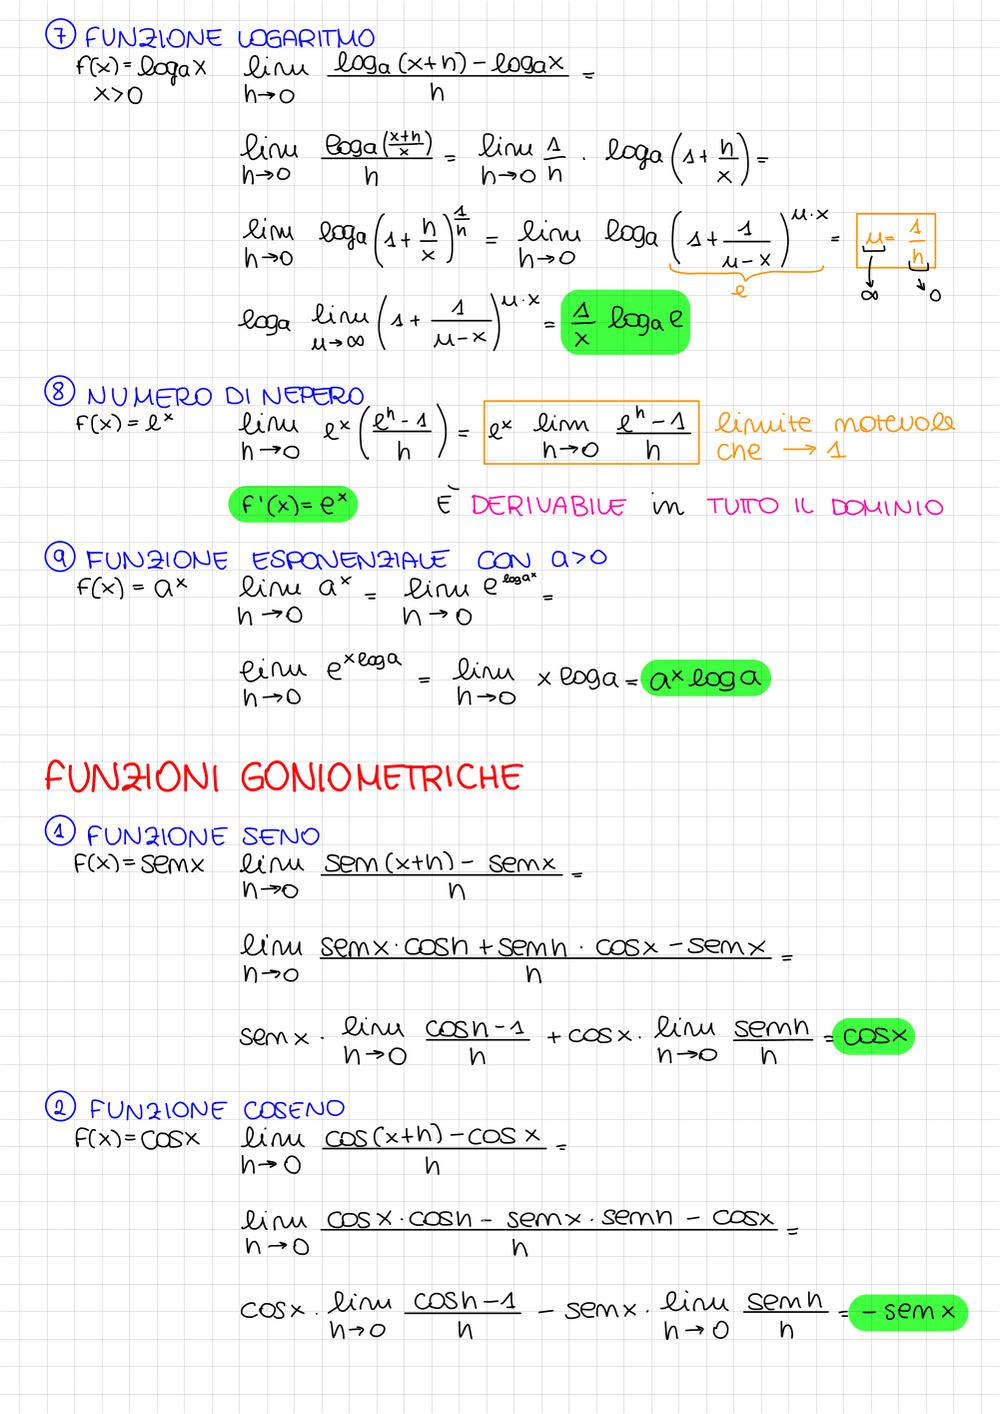 ⑦ FUNZIONE LOGARITMO
f(x) = logₐx lim h→0 (logₐ(x+h) - logₐx)/h =
x>0
lim h→0 logₐ((x+h)/x)/h = lim h→0 1/h · logₐ(1 + h/x) =
lim h→0 logₐ(1 + h/x)^(1/h) = lim h→0 logₐ(1 + 1/(μ-x))^(μ·x) = μ = 1/h
e ∞ 0
logₐ lim μ→∞ (1 + 1/(μ-x))^(μ·x) = 1/x logₐe
⑧ NUMERO DI NEPERO
f(x) = e^x lim h→0 e^x ((e^h - 1)/h) = e^x lim h→0 (e^h - 1)/h limite notevole
che → 1
f'(x) = e^x È DERIVABILE in TUTTO IL DOMINIO
⑨ FUNZIONE ESPONENZIALE CON a>0
f(x) = a^x lim h→0 a^x = lim h→0 e^(log a^x) =
lim h→0 e^(x log a) = lim h→0 x log a = a^x log a
FUNZIONI GONIOMETRICHE
① FUNZIONE SENO
f(x) = senx lim h→0 (sen(x+h) - senx)/h =
lim h→0 (senx · cosh + senh · cosx - senx)/h =
senx · lim h→0 (cosh-1)/h + cosx · lim h→0 senh/h = cosx
② FUNZIONE COSENO
f(x) = cosx lim h→0 (cos(x+h) - cosx)/h =
lim h→0 (cosx · cosh - senx · senh - cosx)/h =
cosx · lim h→0 (cosh-1)/h - senx · lim h→0 senh/h = -senx